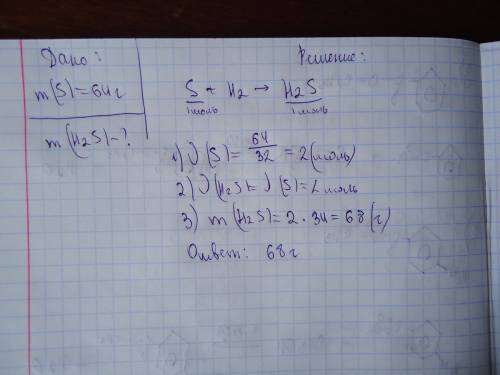 Дано:
m(S)=64г
m(H₂S)-?
Решение:
S + H₂ → H₂S
1моль 1моль
1) ν(S)= 64/32 = 2(моль)
2) ν(H₂S)= ν(S)=2моль
3) m(H₂S)= 2 · 34 = 68(г)
Ответ: 68г